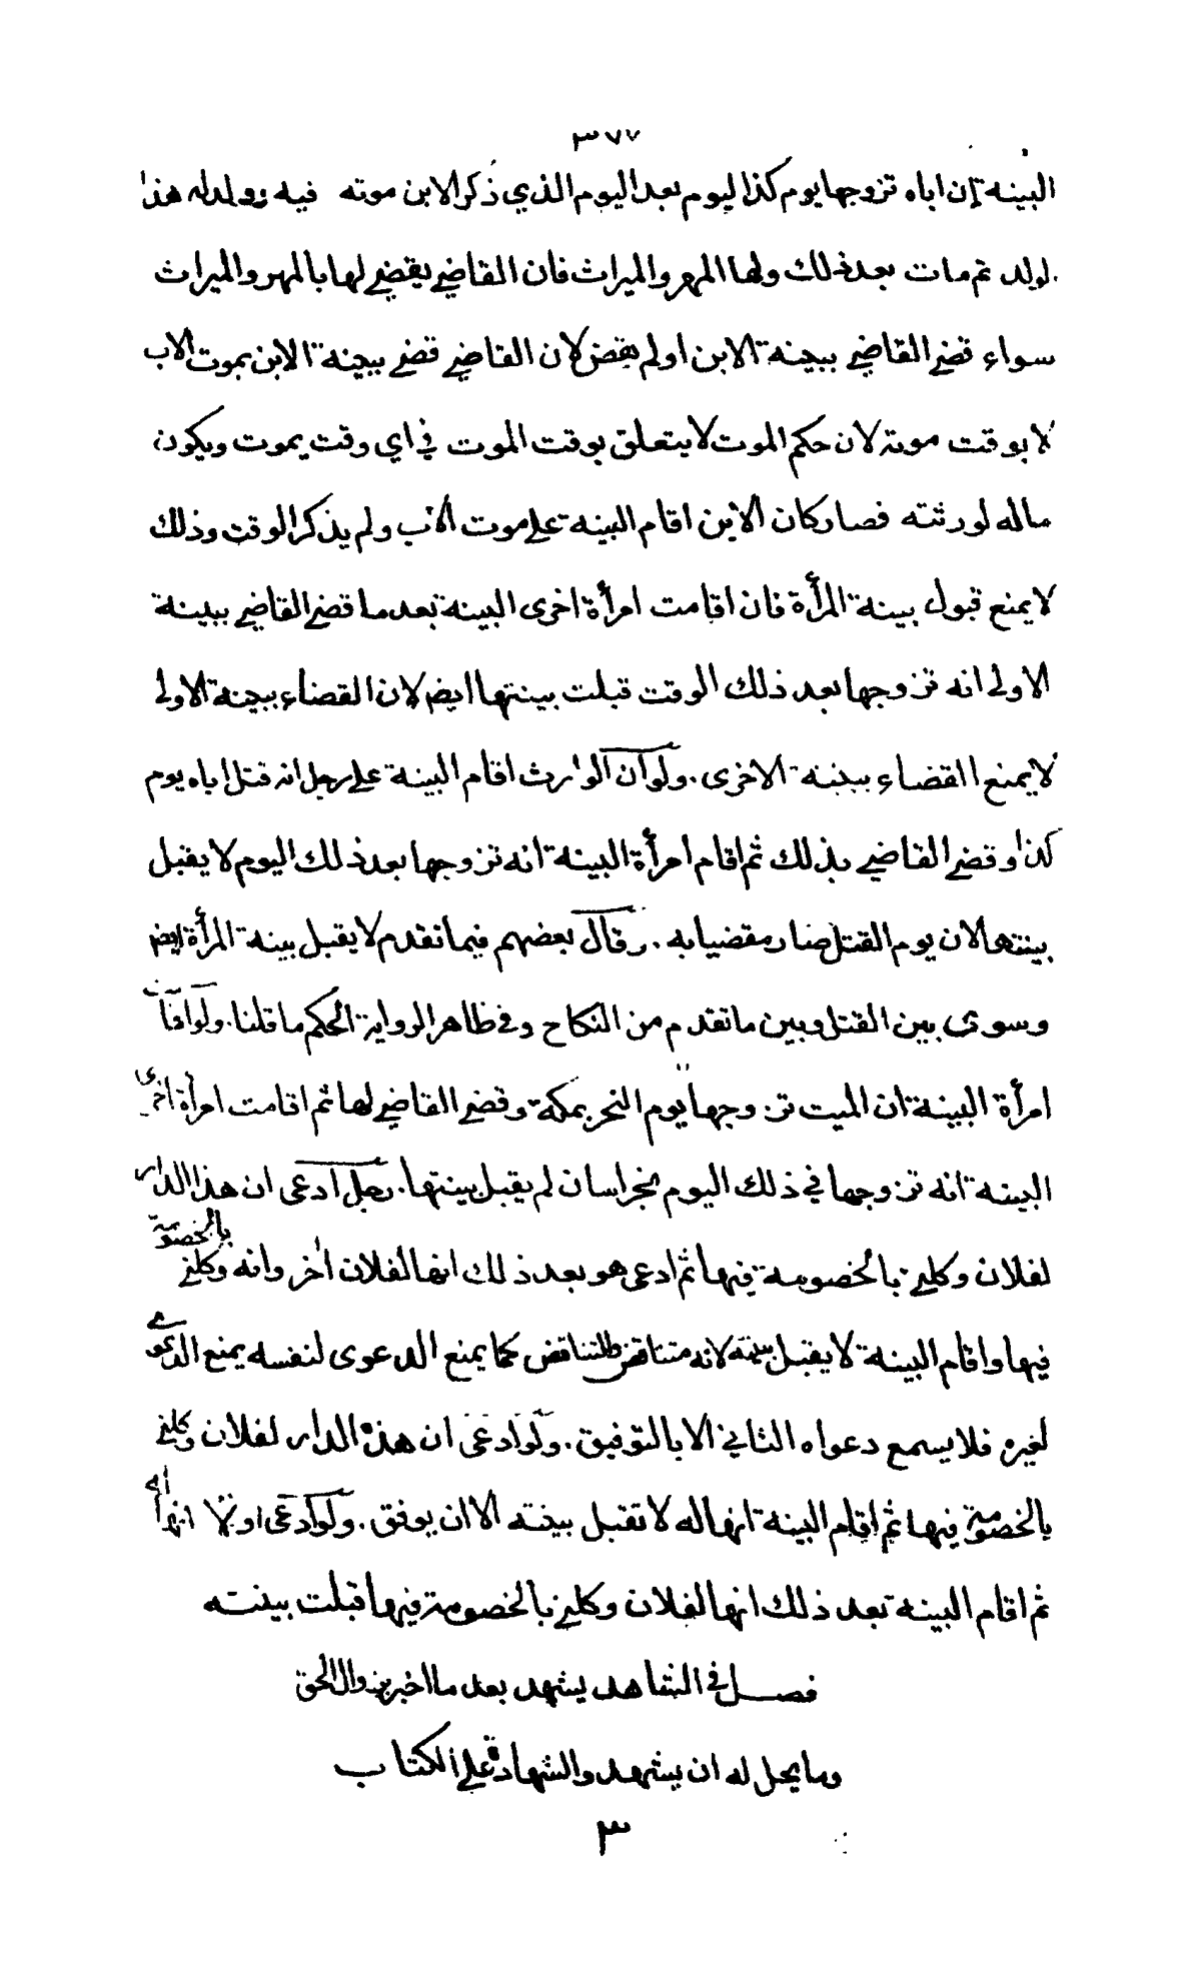 ٣٧٧
البينة إن اباه تزوجها يوم كذا ليوم بعد اليوم الذي ذكر الابن موته فيه وولد له هذا
لولد ثم مات بعد ذلك ولها المهر والميراث فان القاضي يقضي لها بالمهر والميراث
سواء قضى القاضي ببينة الابن او لم يقض لان القاضي قضى ببينة الابن بموت الاب
لا بوقت موته لان حكم الموت لا يتعلق بوقت الموت في اي وقت يموت ويكون
ماله لورثته فصار كان الابن اقام البينة على موت الاب ولم يذكر الوقت وذلك
لا يمنع قبول بينة المرأة فان اقامت امرأة اخرى البينة بعد ما قضى القاضي ببينة
الاولى انه تزوجها بعد ذلك الوقت قبلت بينتها ايضم لان القضاء ببينة الاولى
لا يمنع القضاء ببينة الاخرى . ولو ان الوارث اقام البينة على رجل انه قتل اباه يوم
كذا وقضى القاضي بذلك ثم اقام امرأة البينة انه تزوجها بعد ذلك اليوم لا يقبل
بينتها لان يوم القتل صار مقضيا به . وقال بعضهم فيما تقدم لا يقبل بينة المرأة ايضم
وسوى بين القتل وبين ما تقدم من النكاح وفي ظاهر الرواية الحكم ما قلنا . ولو اقامت
امرأة البينة ان الميت تزوجها يوم النحر بمكة وقضى القاضي لها ثم اقامت امرأة اخرى
البينة انه تزوجها في ذلك اليوم بخراسان لم يقبل بينتها . رجل ادعى ان هذا الدار
لفلان وكلني بالخصومة فيها ثم ادعى هو بعد ذلك انها لفلان اٰخر وانه وكلني بالخصومة
فيها واقام البينة لا يقبل بينته لانه متناقض والتناقض كما يمنع الدعوى لنفسه يمنع الدعوى
لغيره فلا يسمع دعواه الثاني الا بالتوفيق . ولو ادعى ان هذه الدار لفلان وكلني
بالخصومة فيها ثم اقام البينة انها له لا تقبل بينته الا ان يوفق . ولو ادعى اولا انها له
ثم اقام البينة بعد ذلك انها لفلان وكلني بالخصومة فيها قبلت بينته
فصل في الشاهد يشهد بعد ما اخبر بزوال الحق
وما يحل له ان يشهد والشهادة على الكتاب
٣